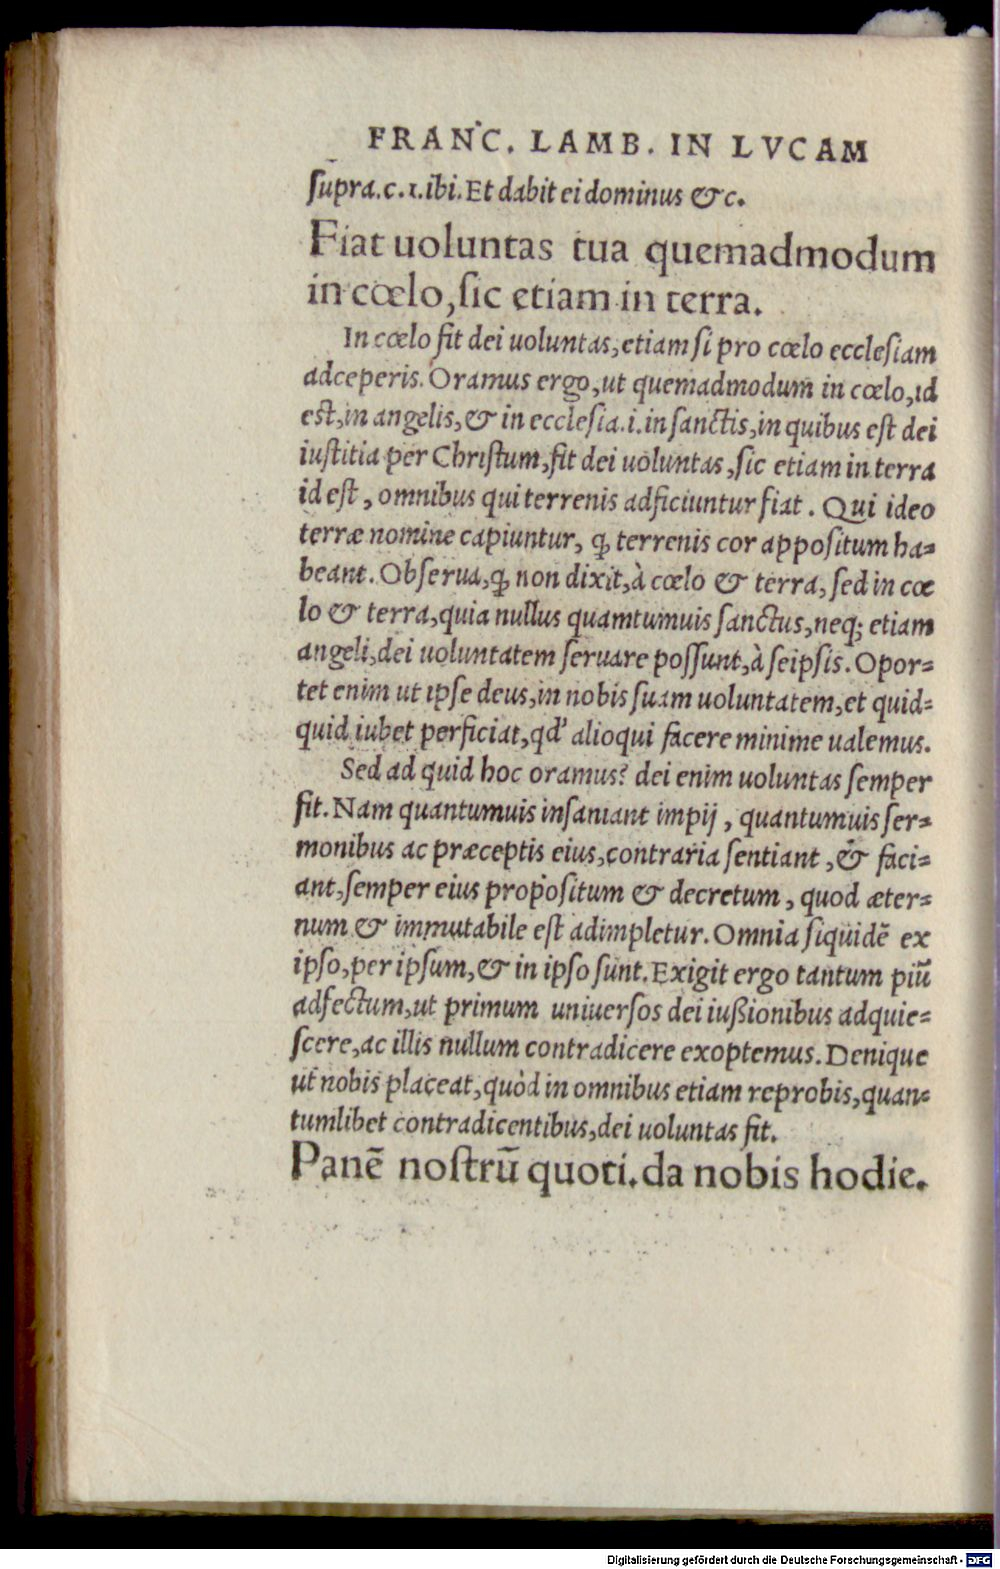 FRANC. LAMB. IN LVCAM
ſupra.c.1.ibi. Et dabit ei dominus &c.
Fiat uoluntas tua quemadmodum
in cœlo, ſic etiam in terra.
In cœlo fit dei uoluntas, etiam ſi pro cœlo eccleſiam
adceperis. Oramus ergo, ut quemadmodum in cœlo, id
eſt, in angelis, & in eccleſia.i.in ſanctis, in quibus eſt dei
iuſtitia per Chriſtum, fit dei uoluntas, ſic etiam in terra
id eſt, omnibus qui terrenis adficiuntur fiat. Qui ideo
terræ nomine capiuntur, ꝙ terrenis cor appoſitum ha=
beant. Obſerua, ꝙ non dixit, à cœlo & terra, ſed in cœ
lo & terra, quia nullus quamtumuis ſanctus, neq; etiam
angeli, dei uoluntatem ſeruare poſſunt, à ſeipſis. Opor=
tet enim ut ipſe deus, in nobis ſuam uoluntatem, et quid=
quid iubet perficiat, qd' alioqui facere minime ualemus.
Sed ad quid hoc oramus? dei enim uoluntas ſemper
fit. Nam quantumuis inſaniant impij, quantumuis ſer=
monibus ac præceptis eius, contraria ſentiant, & faci=
ant, ſemper eius propoſitum & decretum, quod æter=
num & immutabile eſt adimpletur. Omnia ſiquidē ex
ipſo, per ipſum, & in ipſo ſunt. Exigit ergo tantum piū
adfectum, ut primum uniuerſos dei iußionibus adquie=
ſcere, ac illis nullum contradicere exoptemus. Denique
ut nobis placeat, quòd in omnibus etiam reprobis, quan=
tumlibet contradicentibus, dei uoluntas fit.
Panē noſtrū quoti. da nobis hodie.
Digitalisierung gefördert durch die Deutsche Forschungsgemeinschaft - DFG